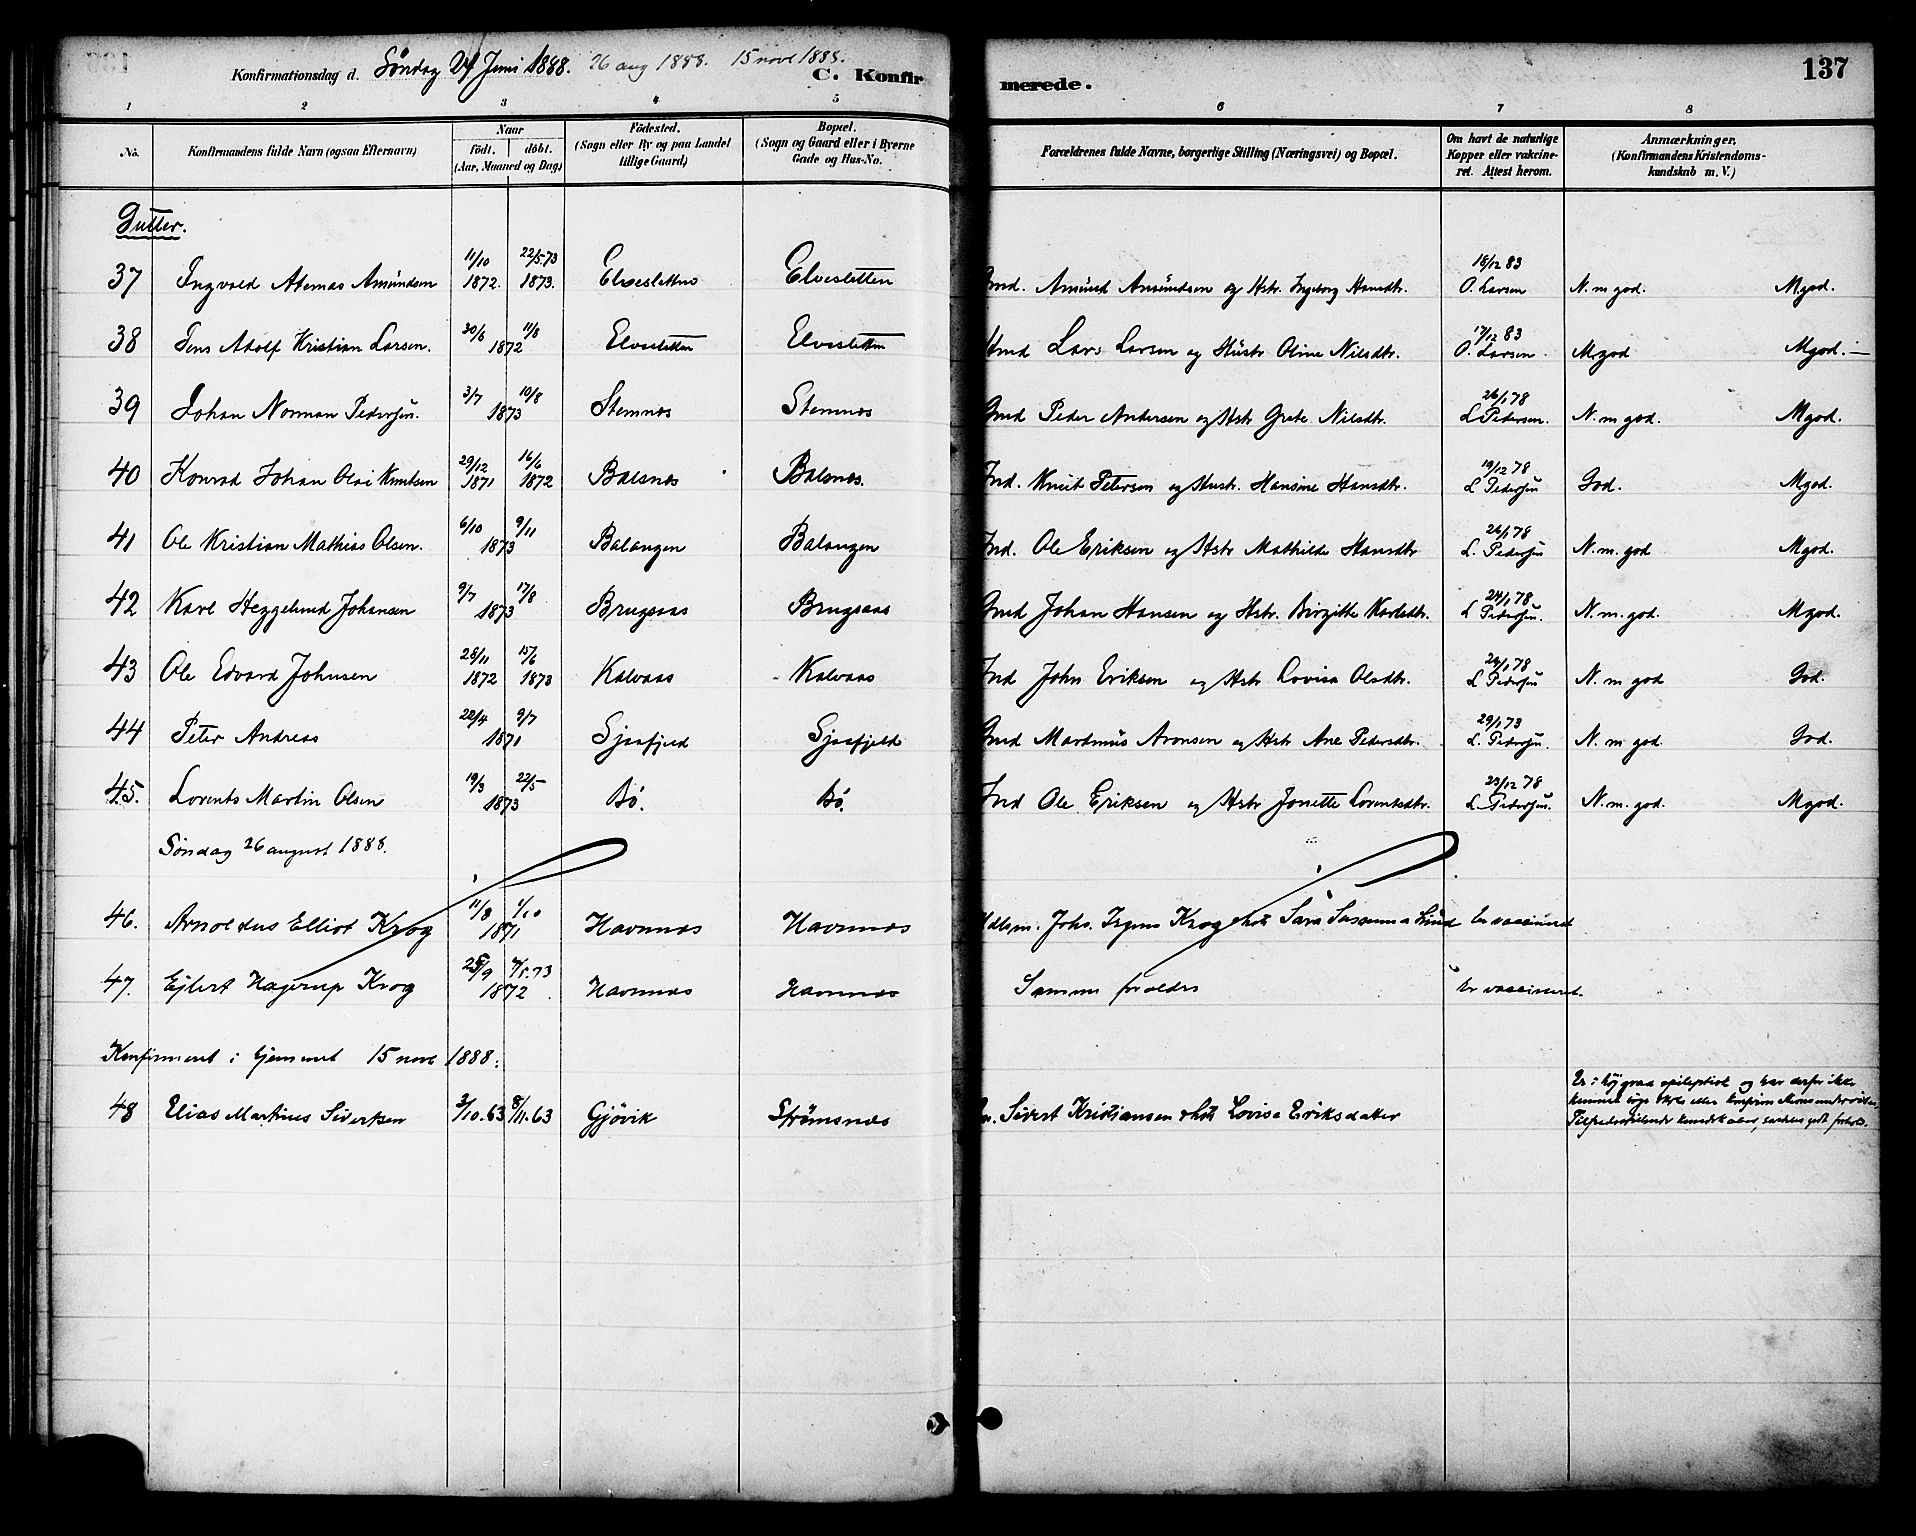 Konfirmationsdag d. Söndag 24 Juni 1888. 26 aug 1888. 15 nove 1888.
C. Konfirmerede. 137
1 2 3 4 5 6 7 8
No. Konfirmandens fulde Navn (ogsaa Efternavn) Naar födt. döbt. (Aar, Maaned og Dag) Födested. (Sogn eller By og paa Landet tillige Gaard) Bopæl. (Sogn og Gaard eller i Byerne Gade og Hus-No. Forældrenes fulde Navne, borgerlige Stilling (Næringsvei) og Bopæl. Om havt de naturlige Kopper eller vakcineret. Attest herom. Anmærkninger. (Konfirmandens Kristendomskundskab m. V.)
Gutter.
37 Ingvald Amundsen 11/10 1872. 22/5.73 1873. Elvesletten Elvesletten Gmd. Amund Amundsen og Hstr. Ingeborg Hansdtr. 18/12 83 O. Larsen N. m god. Mgod.
38 Jens Adolf Kristian Larsen. 30/6 11/8 1872 Elvesletten Elvesletten Lars Larsen og Hustr Oline Nilsdtr. 17/12 83 O. Larsen. Mgod Mgod.—
39 Johan Norman Pedersen. 3/7 10/8 1873 Stemnæs Stemnæs Gmd Peder Andersen og Hstr Grete Nilsdtr. 26/1 78 L. Pedersen. N. m god. Mgod.
40 Konrad Johan Olai Knutsen 29/12 1871 16/6 1872 Balsnes Balsnes. Ind. Knut Petersen og Hustr. Hansine Hansdtr. 19/12 78 L Pedersen God. Mgod.
41 Ole Kristian Mathias Olsen. 6/10 9/11 1873 Balangen Balangen Ind. Ole Eriksen og Hstr Mathilde Hansdtr 26/1 78 L. Pedersen N. m. god Mgod.
42 Karl Heggelund Johansen 9/7 17/8 1873 Brugsaas Brugsaas Gmd Johan Hansen og Hstr. Birgitte Karlsdtr. 24/1 78 L Pedersen. N. m. god. Mgod.
43 Ole Edvard Johnsen 28/11 1872 15/6 1873 Kalvaas Kalvaas Ind John Eriksen og Hstr Lovisa Olsdtr. 24/1 78 L Pedersen N. m god God.
44 Peter Andreas 22/4 9/7 1871 Sjaafjeld Sjaafjeld Gmd Aronsen og Hstr Ane Pedersdtr. 29/1 73 L. Pedersen. N. m god God.
45. Lorents Martin Olsen 19/3 22/5 1873 Bö. Bö. Ind Ole Eriksen og Hstr Jonette Lorentsdtr. 23/12 78 L. Pedersen. N. m. god. Mgod.
Söndag 26 august 1888.
46. Arnoldus Elliot Krog 11/8 1/10 1871 Havnnæs Havnnæs Hdlsm. Johs. Irgens Krog Sara Susanna Lind Er vaccineret
47. Ejlert Hagerup Krog 25/9 4/5.73 1872 Havnnæs Havnnæs Samme forældre Er vaccineret.
Konfirmeret i hjemmet 15 nove 1888.
48 Elias Martinus Sivertsen 3/10.63 8/11.63 Gjövik Strömsnæs Sivert Kristiansen Lovisa Eriksdatter Er i höj grad epileptisk og har derfor ikke
kunnet söge skole eller
Tilfredsstillende kundskaber,